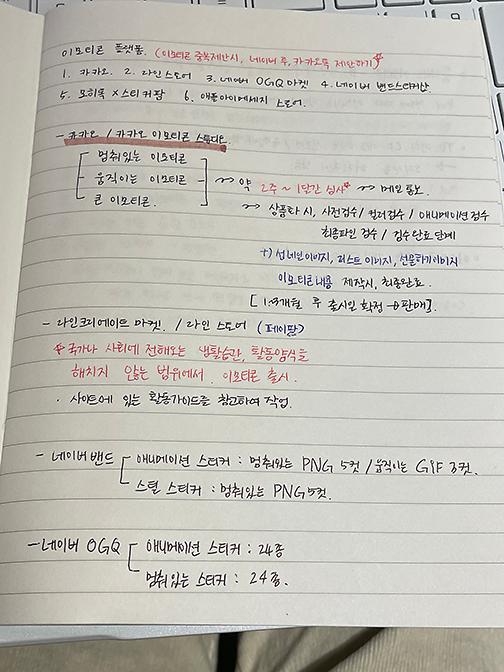 이모티콘 플랫폼. (이모티콘 중복제안시, 네이버 후, 카카오톡 제안하기)
1. 카카오. 2. 라인스토어 3. 네이버 OGQ마켓 4. 네이버 밴드스티커샵
5. 모히톡 X 스티커팜 6. 애플아이메세지 스토어.
- 카카오 / 카카오 이모티콘 스튜디오.
멈춰있는 이모티콘
움직이는 이모티콘 → 약 2주 ~ 1달간 심사 → 메일 통보.
큰 이모티콘.
→ 상품화 시, 사전검수 / 컬러검수 / 애니메이션 검수
최종파일 검수 / 검수완료 단계
+) 썸네일이미지, 리스트 이미지, 선물하기이미지
이모티콘내용 제작시, 최종완료.
[1~3개월 후 출시일 확정 → 판매].
- 라인크리에이트 마켓. / 라인 스토어 (페이팔)
국가나 사회에 전해오는 생활습관, 활동양식을
해치지 않는 범위에서. 이모티콘 출시.
· 사이트에 있는 활동가이드를 참고하여 작업.
- 네이버밴드 애니메이션 스티커 : 멈춰있는 PNG 5컷 / 움직이는 GIF 3컷.
스틸 스티커 : 멈춰있는 PNG 5컷.
- 네이버 OGQ 애니메이션 스티커 : 24종
멈춰있는 스티커 : 24종.